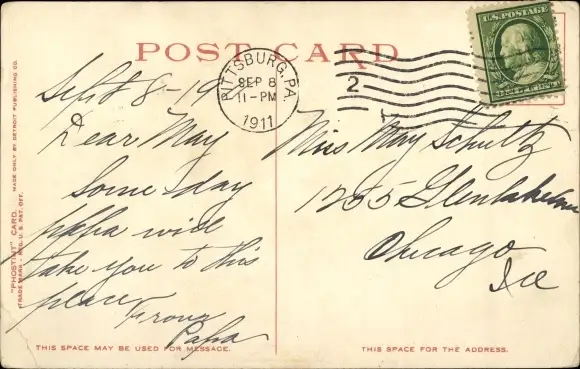 POST CARD
U.S. POSTAGE
ONE CENT
PITTSBURG, PA.
SEP 8
11-PM
1911
2
Sept 8-19
Dear May
Some day
papa will
take you to this
place
From
Papa
Miss May Schultz
1255 Glenlake Ave
Chicago
Ill
"PHOSTINT" CARD. MADE ONLY BY DETROIT PUBLISHING CO.
TRADE MARK - REG. U.S. PAT. OFF.
THIS SPACE MAY BE USED FOR MESSAGE.
THIS SPACE FOR THE ADDRESS.